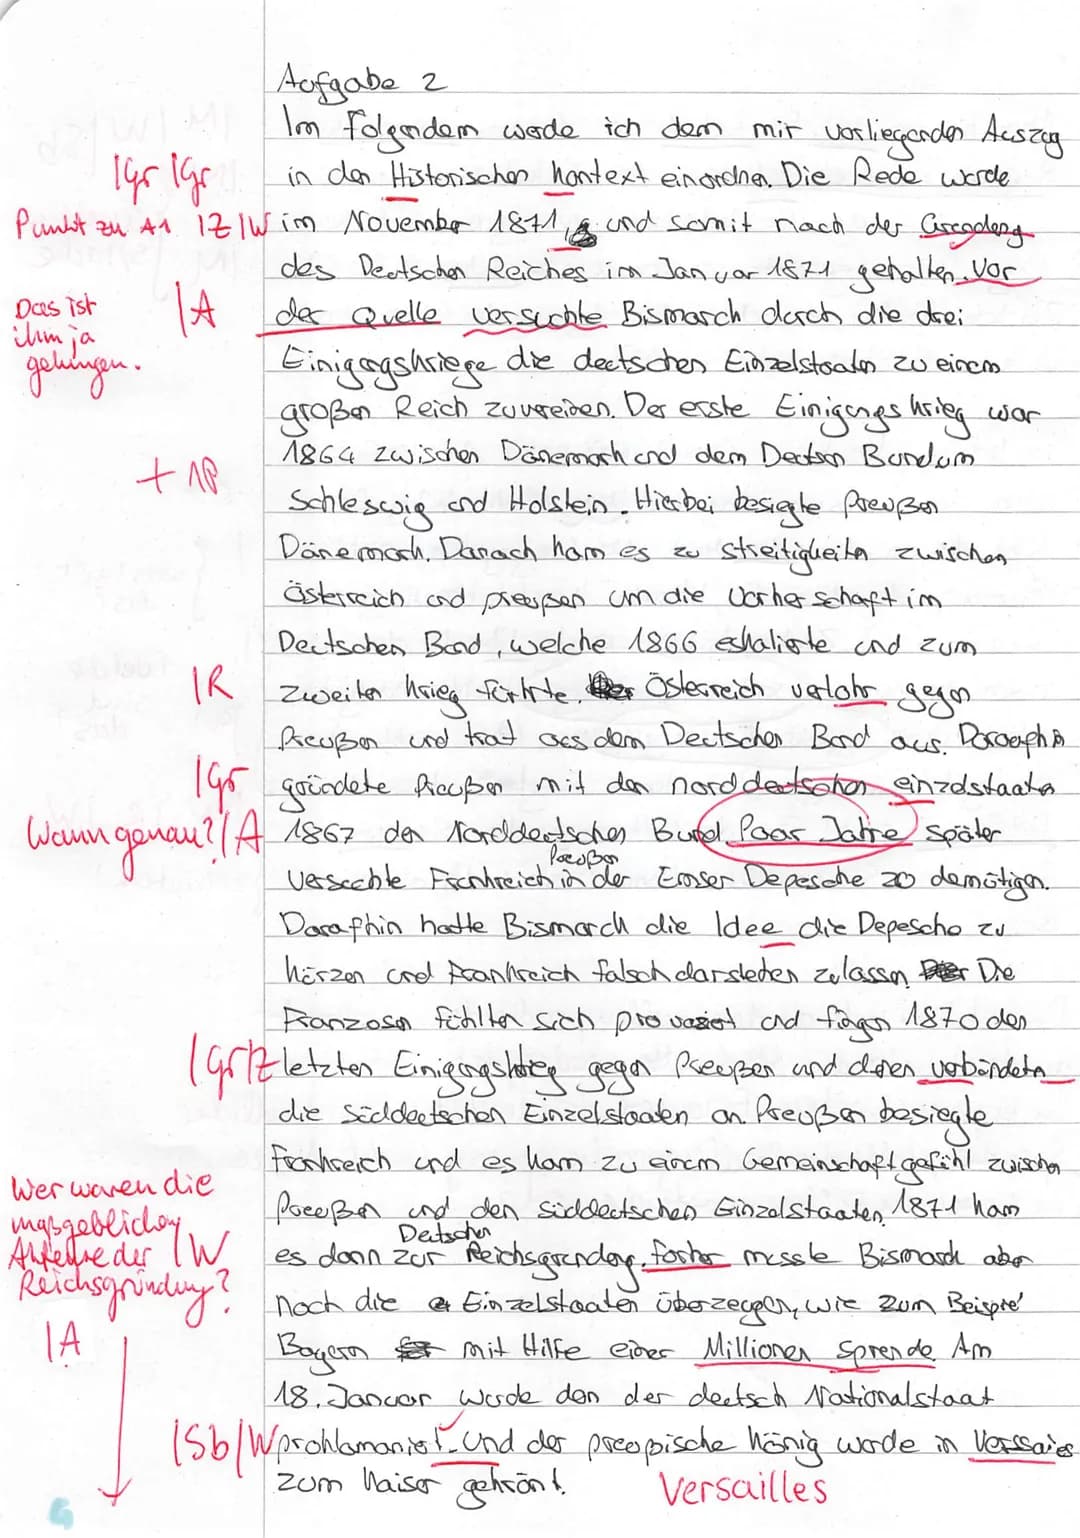 Aufgabe 2
Im folgendem werde ich dem mir vorliegenden Auszug
|Gr |Gr
in den Historischen kontext einordnen. Die Rede wurde
Punkt zu A1 |Z|W
im November 1871, und somit nach der Gründung
des Deutschen Reiches im Januar 1871 gehalten. Vor
Das ist ihm ja gelungen.
|A
der Quelle versuchte Bismarck durch die drei
Einigungskriege die deutschen Einzelstaaten zu einem
großen Reich zuvereinen. Der erste Einigungskrieg war
1864 zwischen Dänemark und dem Deutschen Bund um
+ 1P
Schleswig und Holstein. Hierbei besiegte Preußen
Dänemark. Danach kam es zu streitigkeiten zwischen
Österreich und preußen um die Vorherschaft im
Deutschen Bund, welche 1866 eskalierte und zum
|R
zweiten krieg führte. Österreich verlohr gegen
Preußen und trat aus dem Deutschen Bund aus. Daraufhin
|Gr
gründete Preußen mit den norddeutschen einzelstaaten
Wann genau? |A
1867 den Norddeutschen Bund. Paar Jahre später
Preußen
versuchte Frankreich in der Emser Depesche zu demütigen.
Daraufhin hatte Bismarck die Idee die Depesche zu
kürzen und Frankreich falsch darstellen zulassen. Die
Franzosen fühlten sich provoziert und fingen 1870 den
|Gr|Z
letzten Einigungskrieg gegen Preußen und deren verbündeten
die Süddeutschen Einzelstaaten an. Preußen besiegte
Frankreich und es kam zu einem Gemeinschaftgefühl zwischen
Wer waren die
maßgeblichen
Akteure der |W
Reichsgründung?
Preußen und den süddeutschen Einzelstaaten. 1871 kam
Deutschen
es dann zur Reichsgründung. forher musste Bismarck aber
noch die Einzelstaaten überzeugen, wie zum Beispiel
|A
Bayern mit Hilfe einer Millionen Spende. Am
18. Januar wurde dan der deutsch Nationalstaat
|Sb|W
prohlamaniert. Und der preußische König wurde in Verssaies
zum Kaiser gekrönt.
Versailles